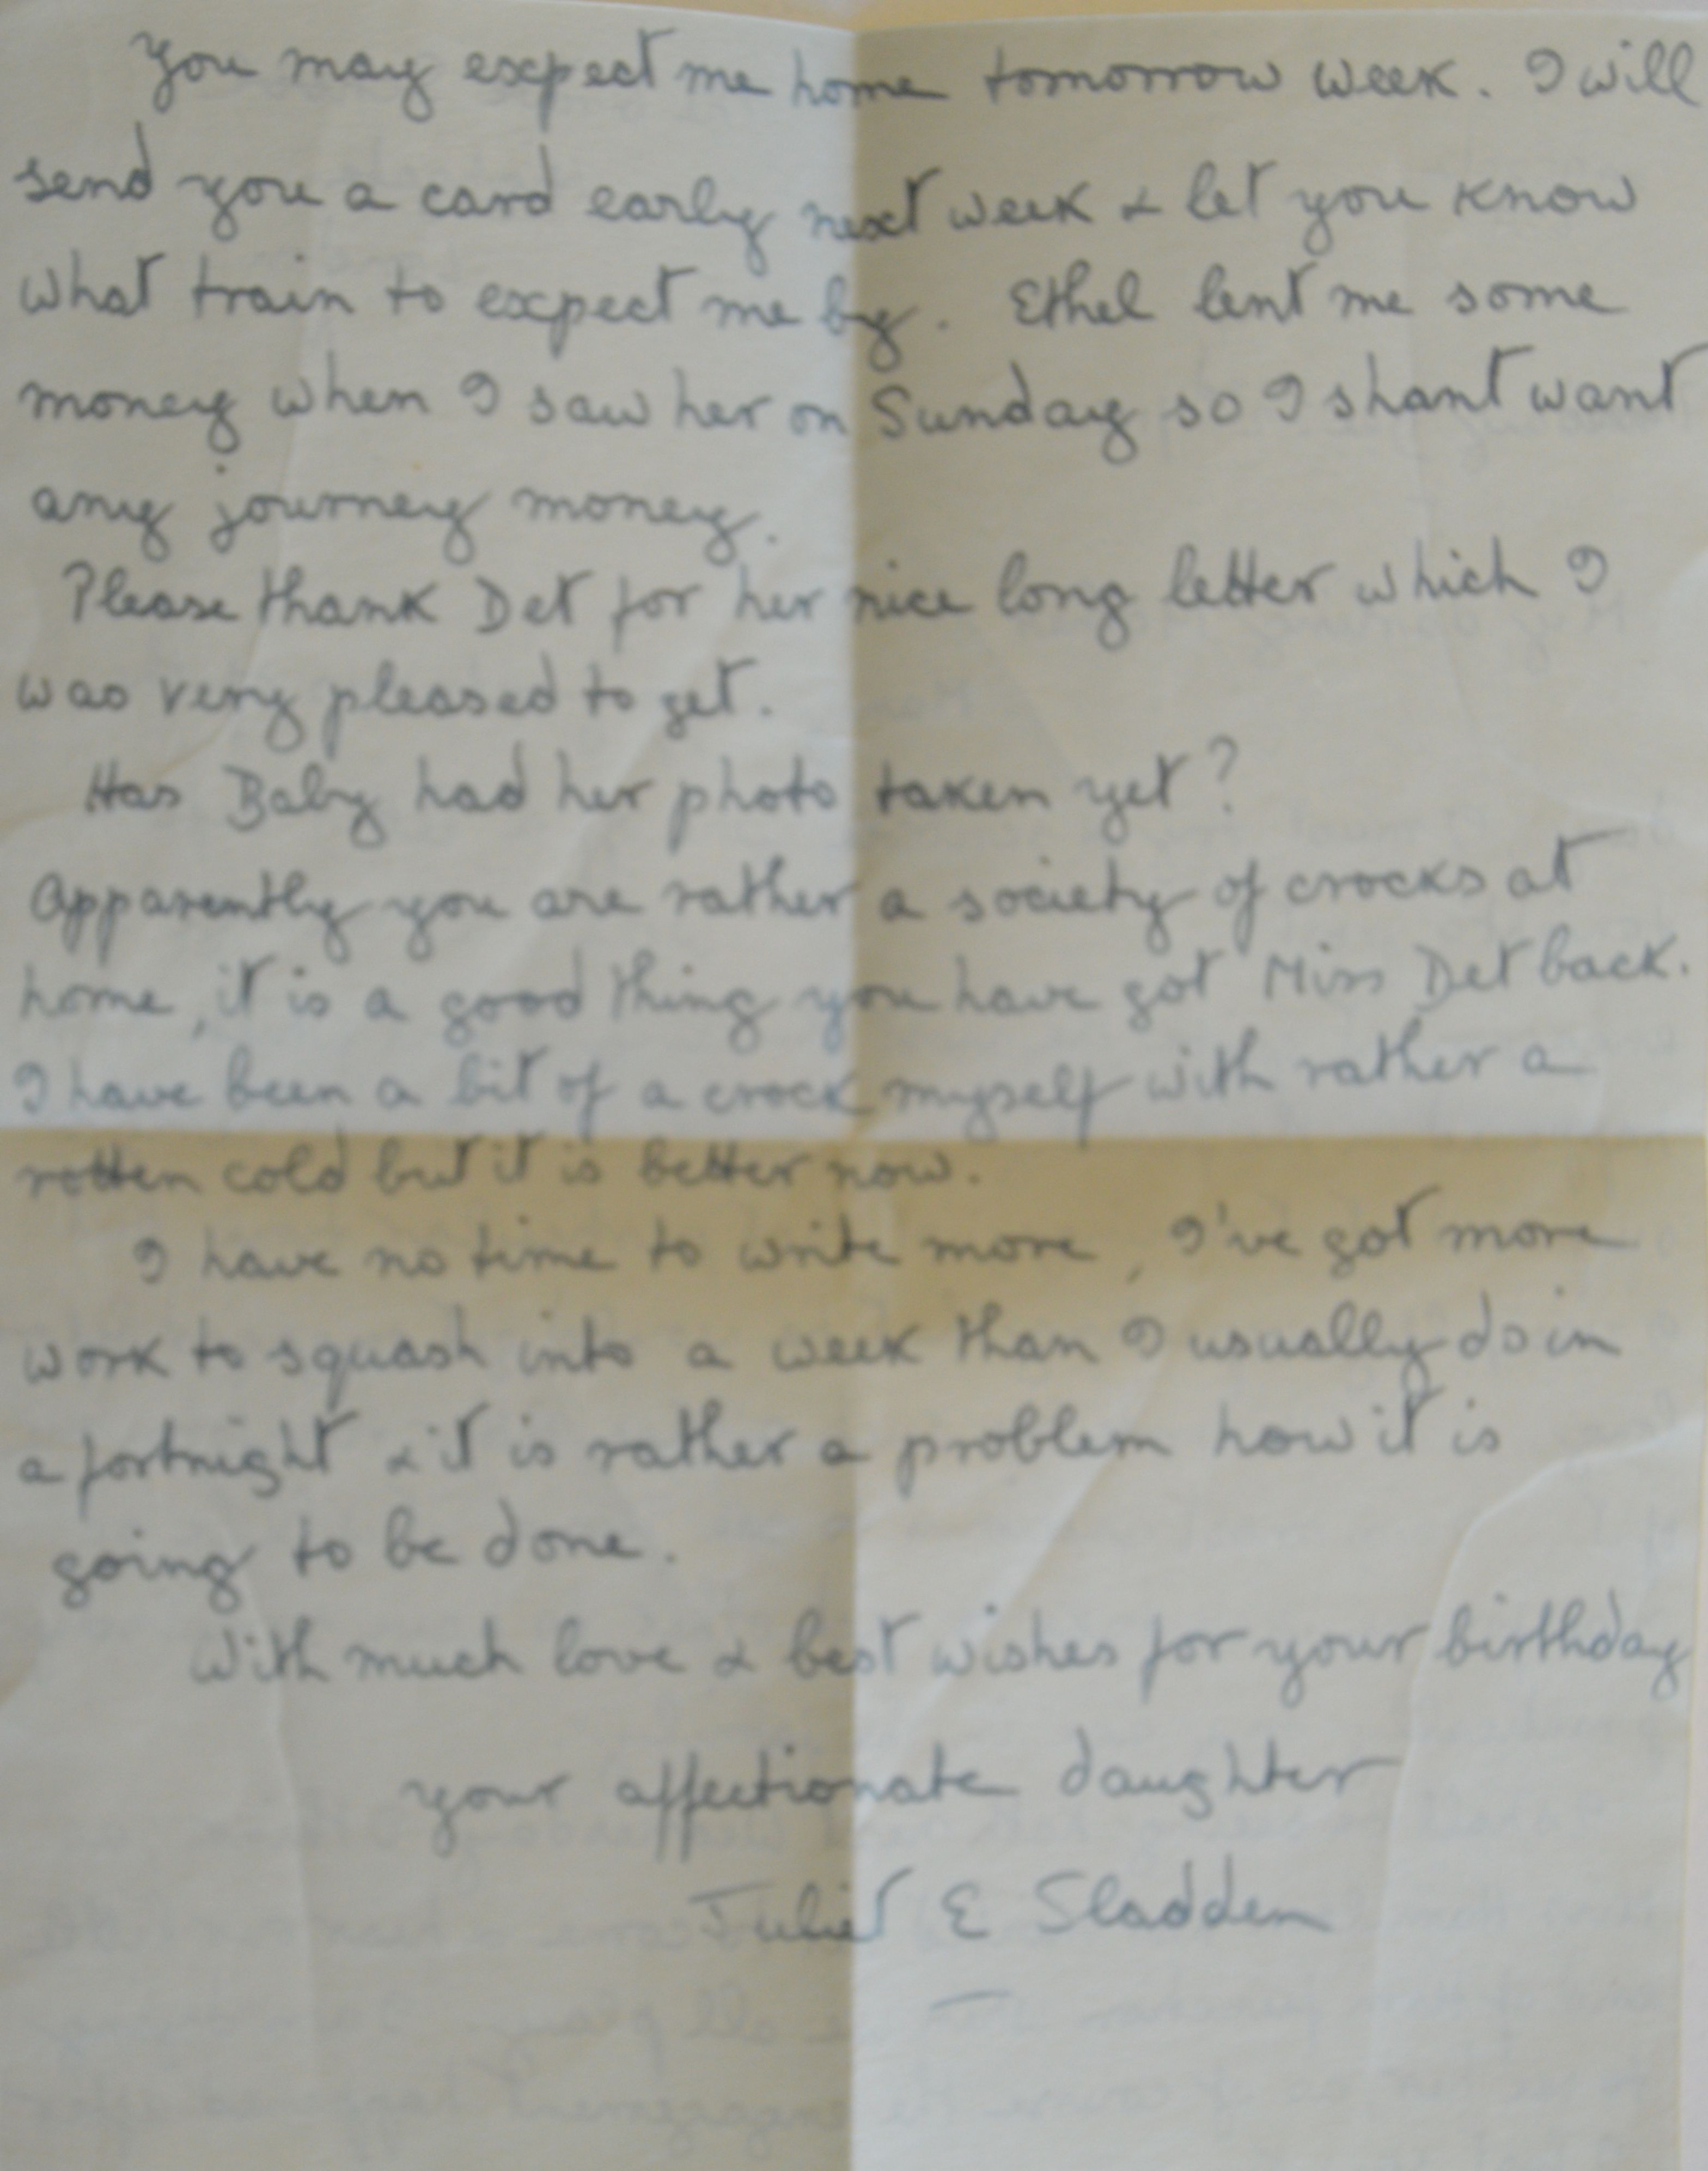 you may expect me home tomorrow week. I will
send you a card early next week & let you know
what train to expect me by. Ethel lent me some
money when I saw her on Sunday so I shant want
any journey money.
Please thank Det for her nice long letter which I
was very pleased to get.
Has Baby had her photo taken yet?
Apparently you are rather a society of crocks at
home, it is a good thing you have got Miss Det back.
I have been a bit of a crock myself with rather a
rotten cold but it is better now.
I have no time to write more, I've got more
work to squash into a week than I usually do in
a fortnight & it is rather a problem how it is
going to be done.
With much love & best wishes for your birthday
your affectionate daughter
Juliet E Sladden